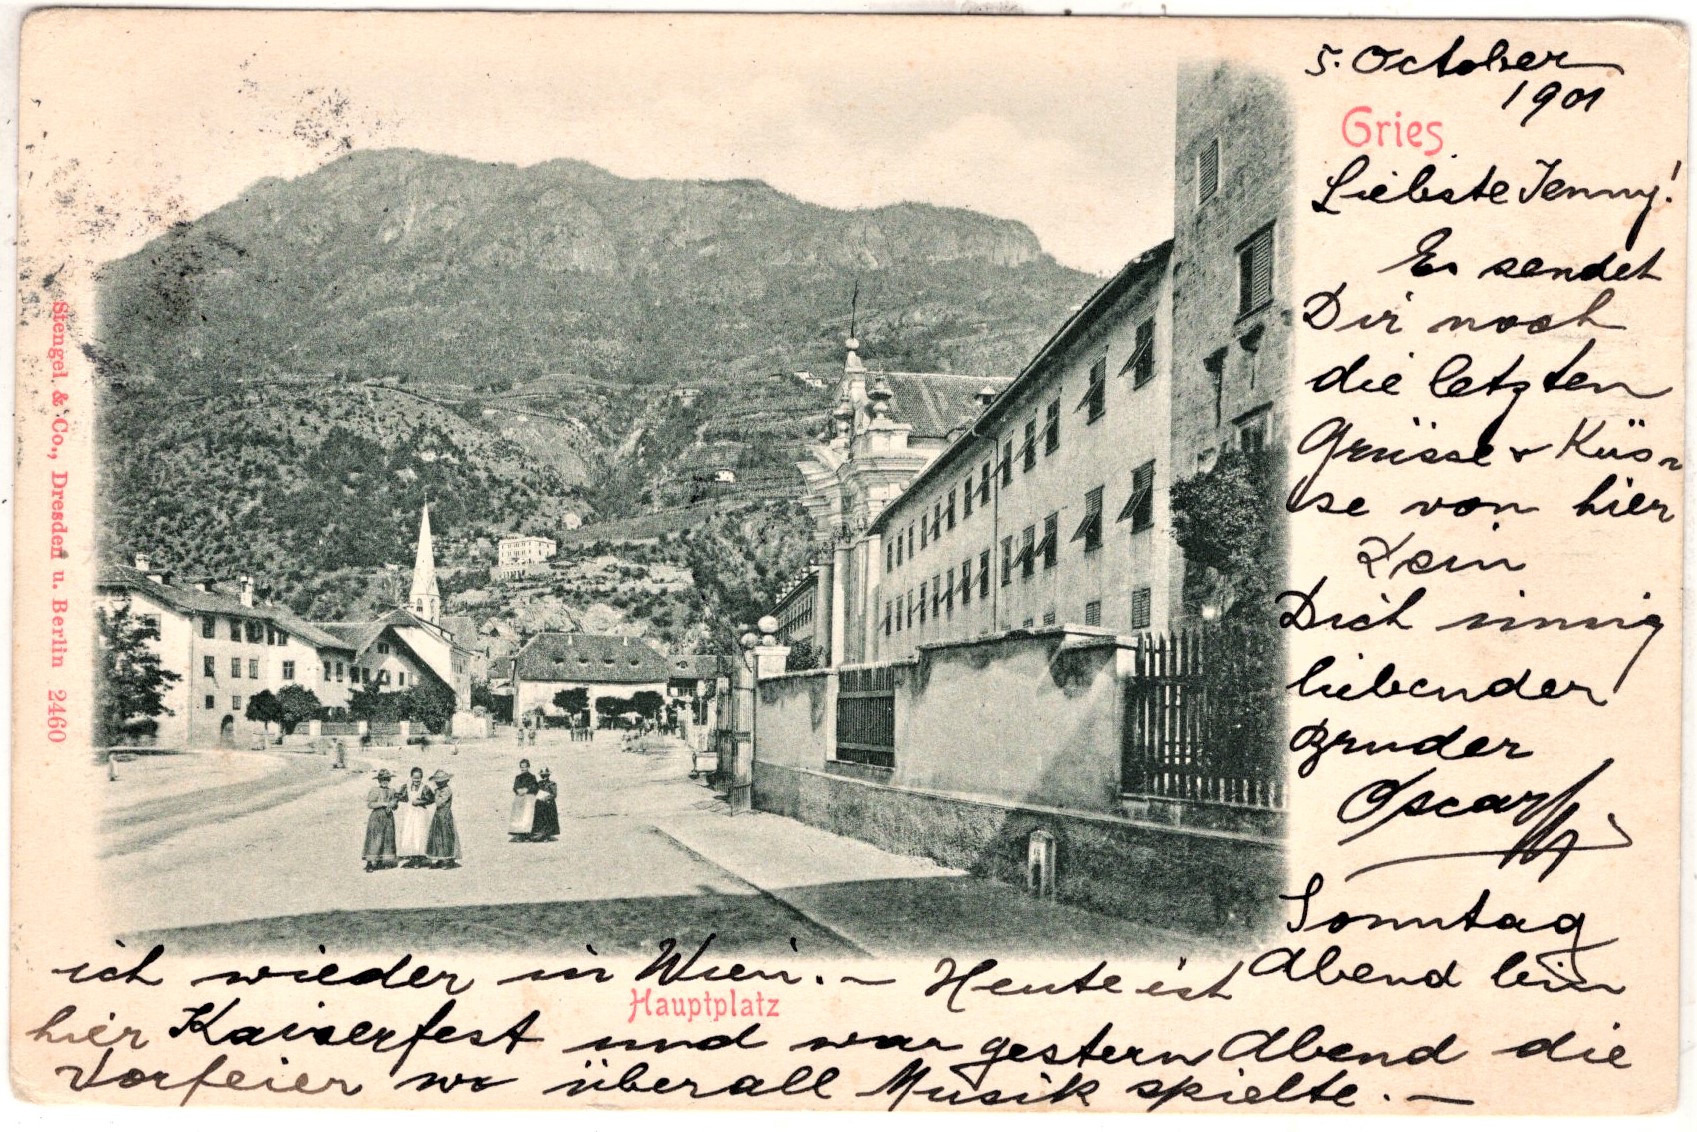 5. October
1901
Gries
Liebste Jenny!
Es sendet
Dir noch
die letzten
Grüsse & Küs-
se von hier
Dein
Dich innig
liebender
Bruder
Oscar
Sonntag
Abend bin
ich wieder in Wien. — Heute ist
Hauptplatz
hier Kaiserfest und war gestern Abend die
Vorfeier wo überall Musik spielte. —
Stengel & Co., Dresden u. Berlin 2460